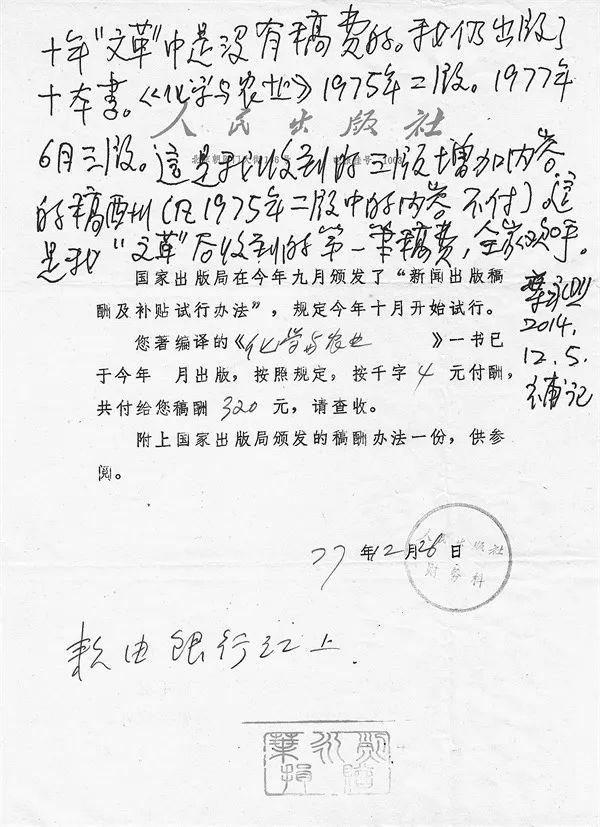 十年“文革”中是没有稿费的。我仍出版了
十本书。《化学与农业》1975年二版。1977年
人民出版社
6月三版。這是我收到的三版增加内容
的稿酬(但1975年二版中的内容不付)這
是我“文革”后收到的第一筆稿費,全家欢呼。
葉永烈
2014.
12.5.
补记
国家出版局在今年九月颁发了“新闻出版稿
酬及补贴试行办法”,规定今年十月开始试行。
您著编译的《化学与农业》一书已
于今年 月出版,按照规定,按千字4元付酬,
共付给您稿酬320元,请查收。
附上国家出版局颁发的稿酬办法一份,供参
阅。
77年12月26日
人民出版社
财务科
款由银行汇上.
葉永烈
捐贈